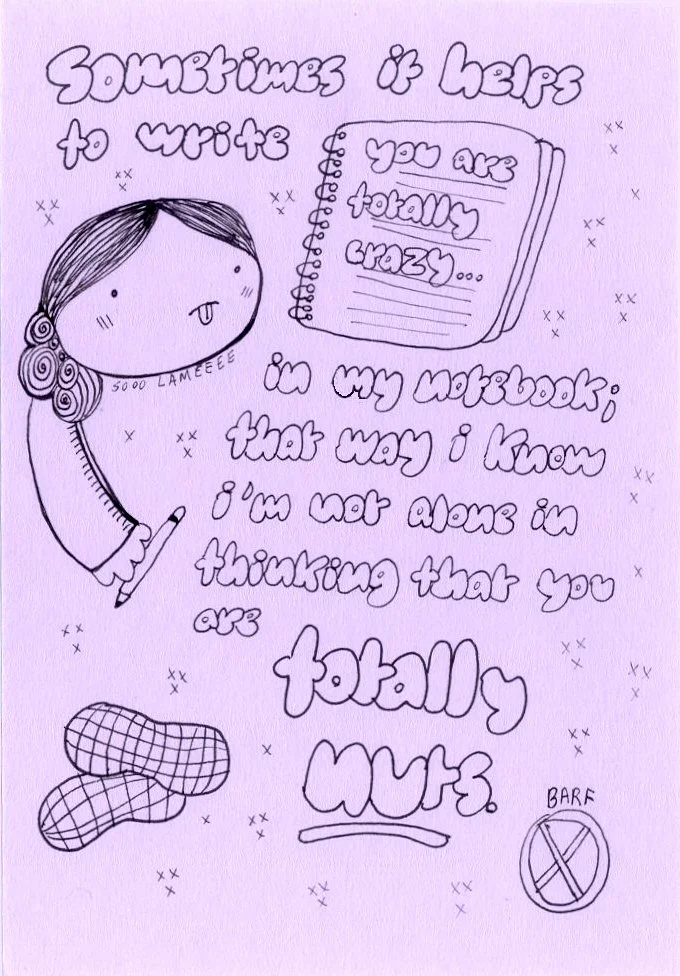 Sometimes it helps
to write
you are
totally
crazy...
sooo LAMEEEE
in my notebook;
that way i know
i'm not alone in
thinking that you
are
totally
nuts.
BARF